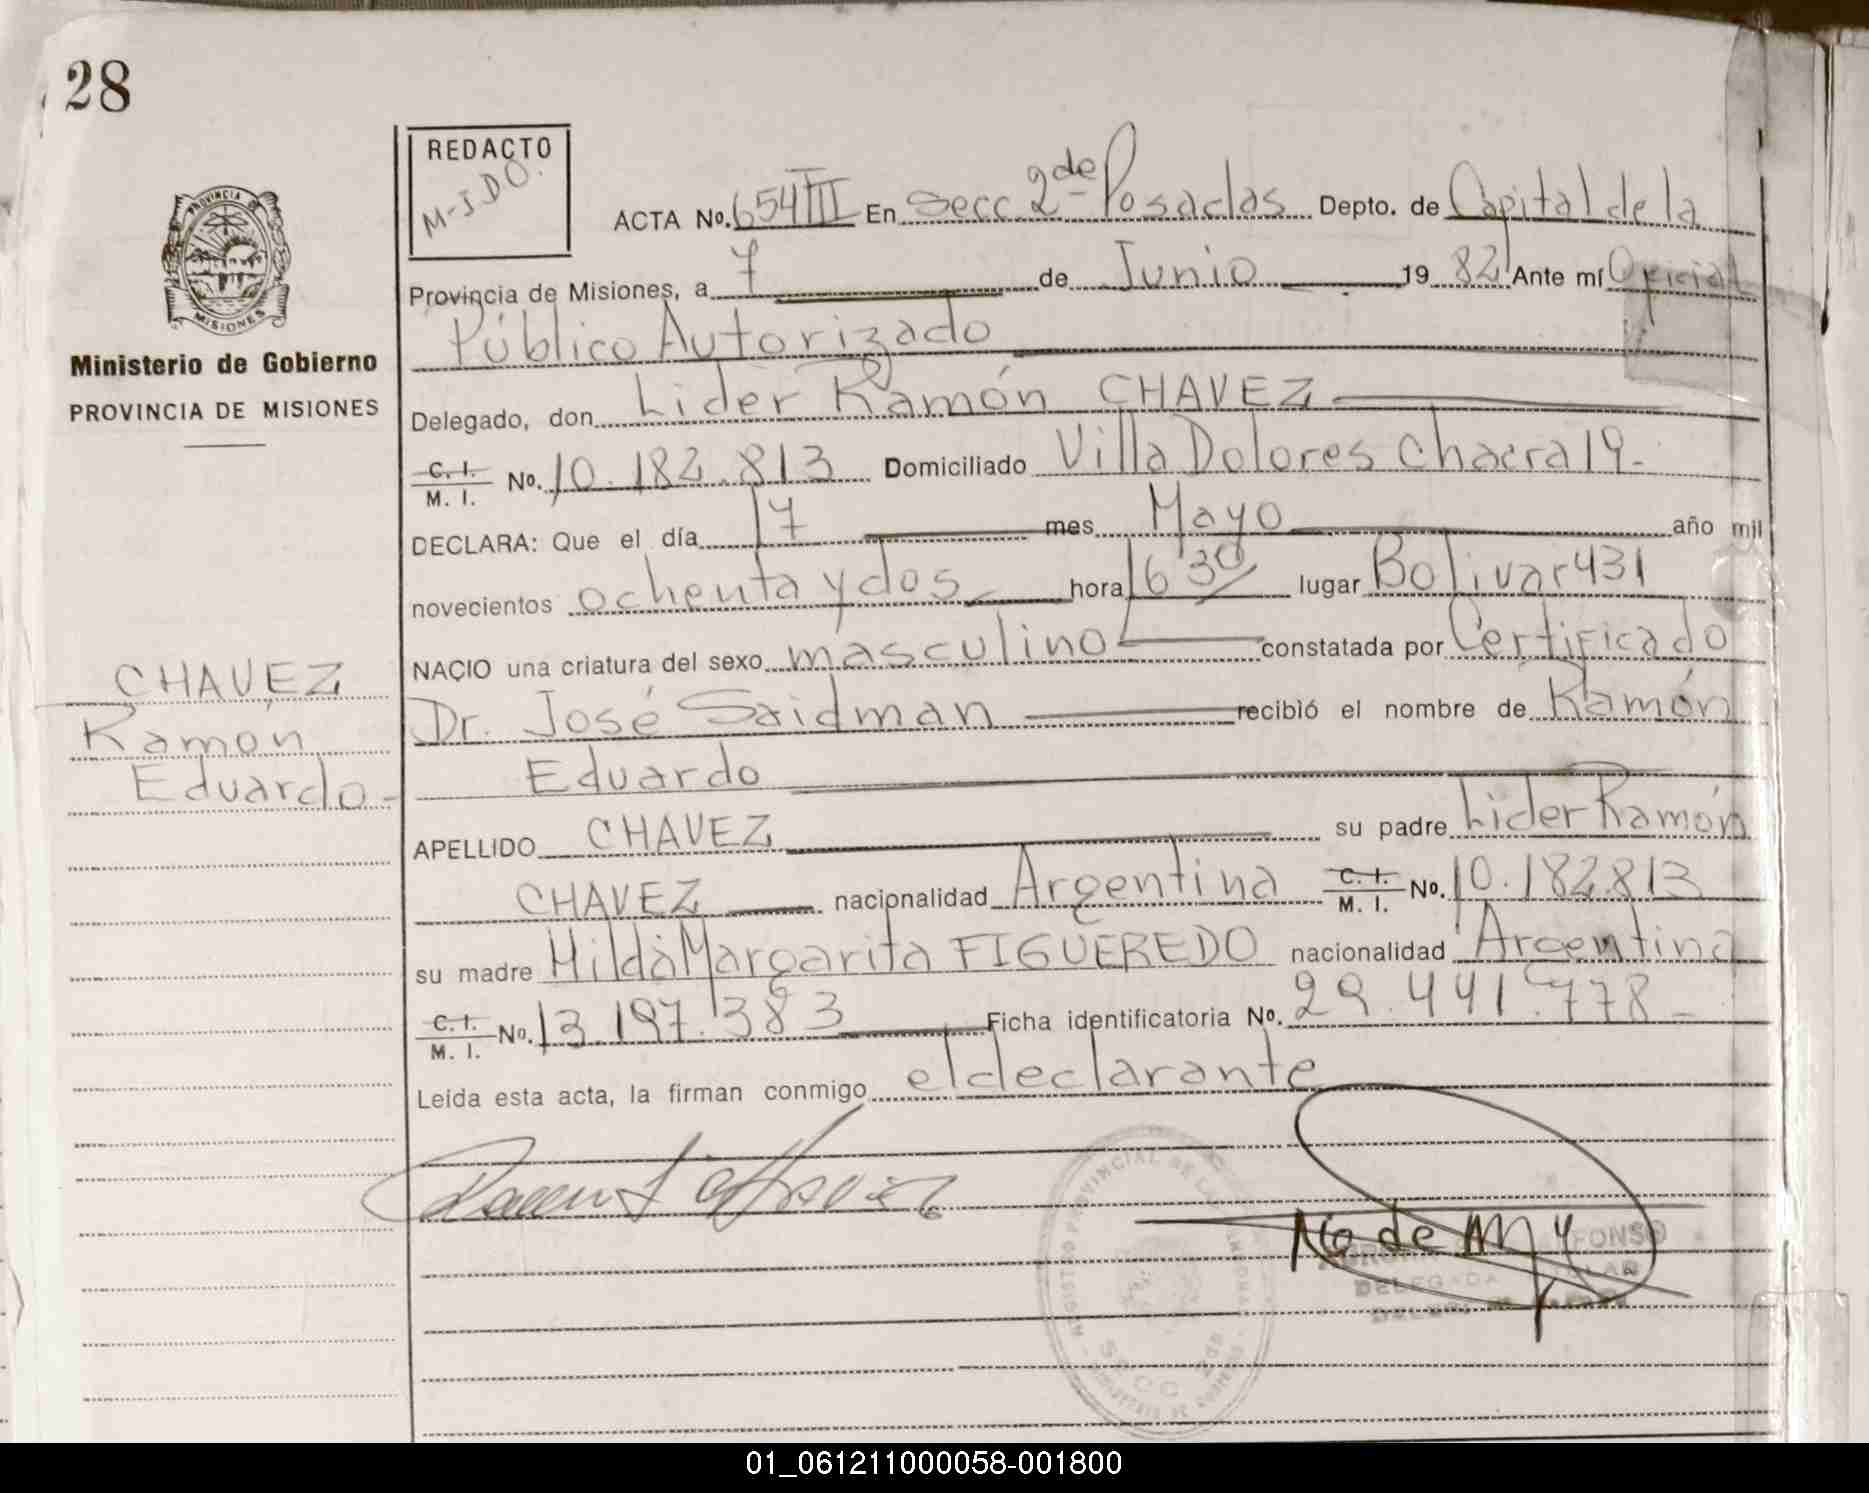 28
REDACTO
M-J.D.O.
PROVINCIA DE
MISIONES
Ministerio de Gobierno
PROVINCIA DE MISIONES
ACTA No. 654 III En Secc. 2de Posadas Depto. de Capital de la
Provincia de Misiones, a 7 de Junio 1982 Ante mí Oficial
Público Autorizado
Delegado, don Lider Ramón CHAVEZ
C. I. M. I. No. 10.182.813 Domiciliado Villa Dolores Chacra 19-
DECLARA: Que el día 17 mes Mayo año mil
novecientos ochenta y dos hora 16 30 lugar Bolivar 431
NACIO una criatura del sexo masculino constatada por Certificado
Dr. José Saidman recibió el nombre de Ramón
Eduardo
CHAVEZ
Ramón
Eduardo-
APELLIDO CHAVEZ su padre Lider Ramón
CHAVEZ nacionalidad Argentina C. I. M. I. No. 10.182.813
su madre Hilda Margarita FIGUEREDO nacionalidad Argentina
C. I. M. I. No. 13.197.383 Ficha identificatoria No. 29.441.778-
Leida esta acta, la firman conmigo el declarante
FONSO
DELEGADA
SECC 2DA
01_061211000058-001800